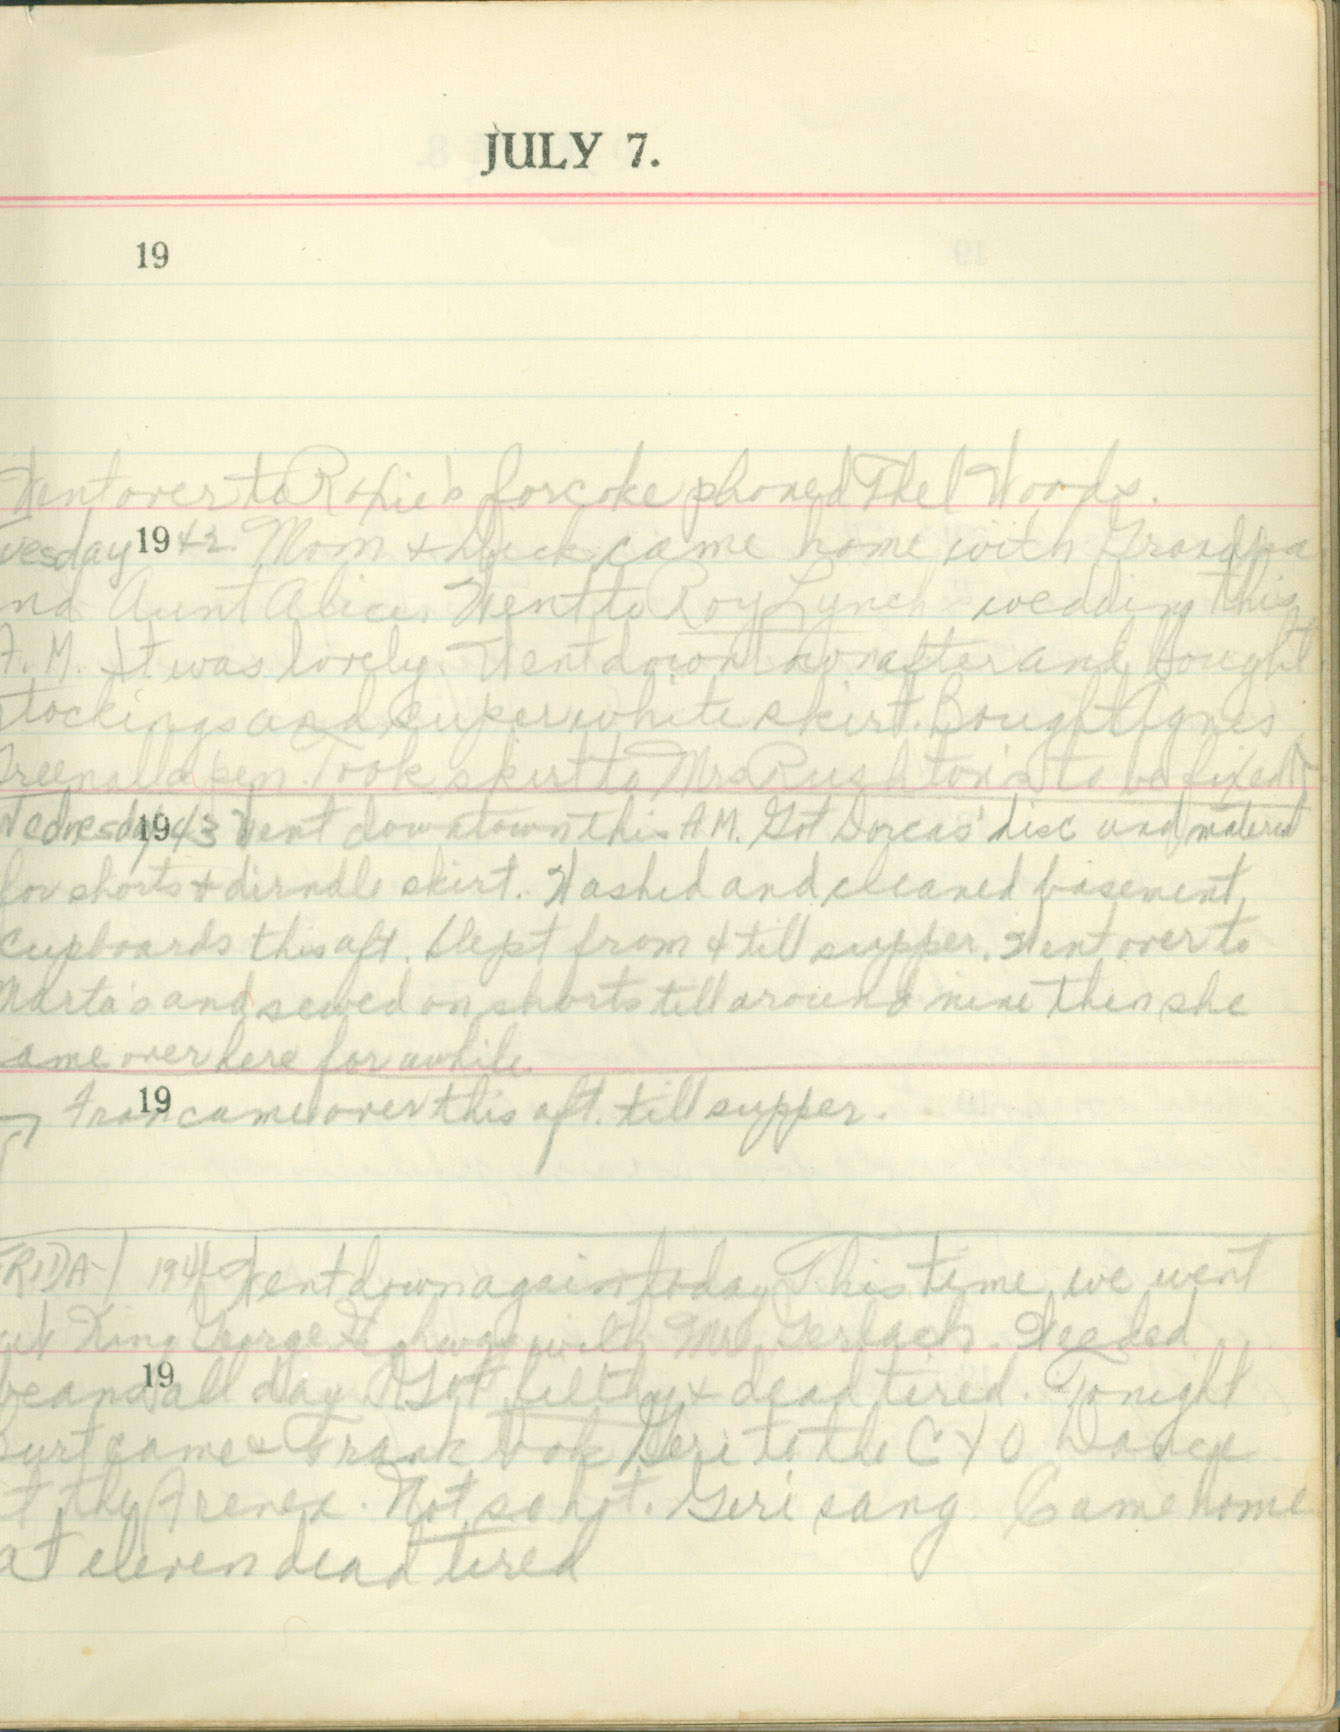 JULY 7.
19
Went over to Roxie's for coke phoned Thel Woods.
uesday 1942 Mom & Chuck came home with Grandpa
nd Aunt Alice. Went to Roy Lynch wedding this
A.M. It was lovely. Went down town after and bought
stockings and super white skirt. Bought Agnes
Greenall a pen. Took skirt to Mrs Rushton's to be fixed
Wednesday 1943 Went downtown this A.M. Got Dorcas' disc and material
for shorts & dirndle skirt. Washed and cleaned basement
cupboards this aft. Slept from 4 till supper. Went over to
Marta's and sewed on shorts till around nine then she
ame over here for awhile.
19
Fran came over this aft. till supper.
FRIDAY 1944 Went down again today This time we went
out King George Highway with Mrs Gerlach. Weeded
19
beans all day Got filthy & dead tired. Tonight
Burt came & Frank took Geri to the CYO Dance
t the Arenex. Not so hot. Geri sang. Came home
at eleven dead tired